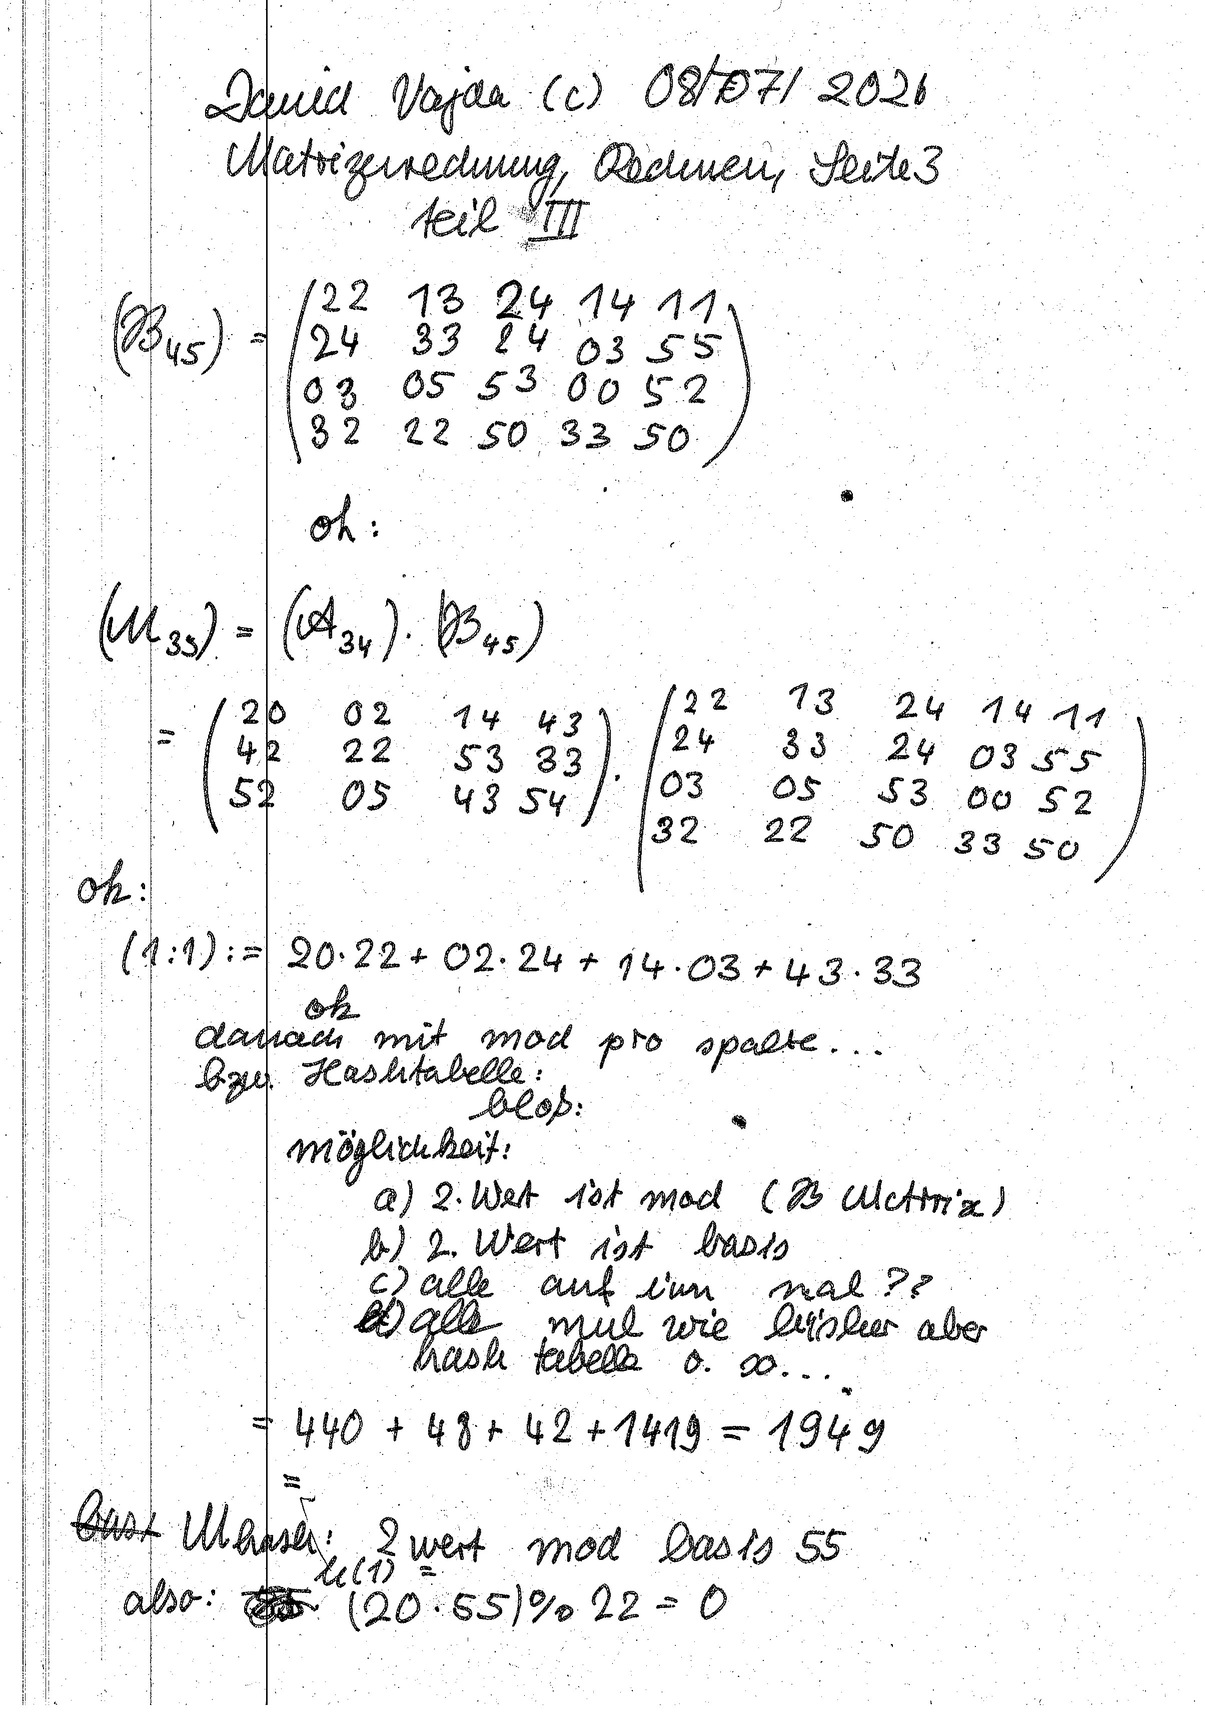 David Vajda (c) 08/07/ 2026
Matrizenrechnung, Rechnen, Seite 3
teil III
(B45) = (22 13 24 14 11
24 33 24 03 55
03 05 53 00 52
32 22 50 33 50)
ok:
(M35) = (A34) · (B45)
= (20 02 14 43
42 22 53 33
52 05 43 54) · (22 13 24 14 11
24 33 24 03 55
03 05 53 00 52
32 22 50 33 50)
ok:
(1:1) := 20·22 + 02·24 + 14·03 + 43·33
ok
danach mit mod pro spalte...
bzw. Hashtabelle:
bloß:
möglichkeit:
a) 2. Wert ist mod (B Matrix)
b) 2. Wert ist basis
c) alle auf mal ??
d) alle mul wie bisher aber
hash tabelle o. so...
= 440 + 48 + 42 + 1419 = 1949
=
hash: 2 wert mod basis 55
h(1) =
also: (20·55)%22 = 0